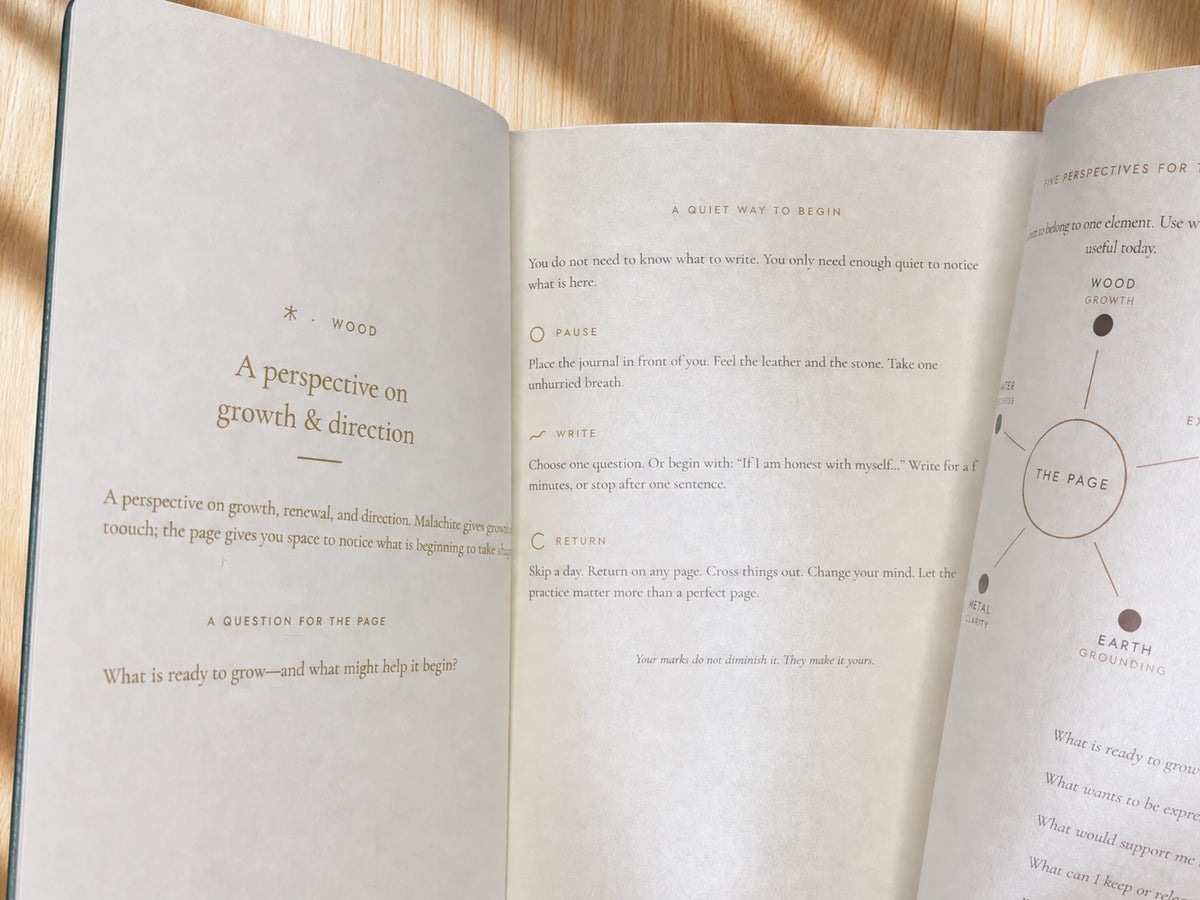 木 · WOOD
A perspective on
growth & direction
A perspective on growth, renewal, and direction. Malachite gives growth
toouch; the page gives you space to notice what is beginning to take
A QUESTION FOR THE PAGE
What is ready to grow—and what might help it begin?
A QUIET WAY TO BEGIN
You do not need to know what to write. You only need enough quiet to notice
what is here.
PAUSE
Place the journal in front of you. Feel the leather and the stone. Take one
unhurried breath.
WRITE
Choose one question. Or begin with: “If I am honest with myself...” Write for a f
minutes, or stop after one sentence.
RETURN
Skip a day. Return on any page. Cross things out. Change your mind. Let the
practice matter more than a perfect page.
Your marks do not diminish it. They make it yours.
FIVE PERSPECTIVES FOR T
to belong to one element. Use w
useful today.
WOOD
GROWTH
ATER
EX
THE PAGE
METAL
CLARITY
EARTH
GROUNDING
What is ready to grow
What wants to be expre
What would support me
What can I keep or relea